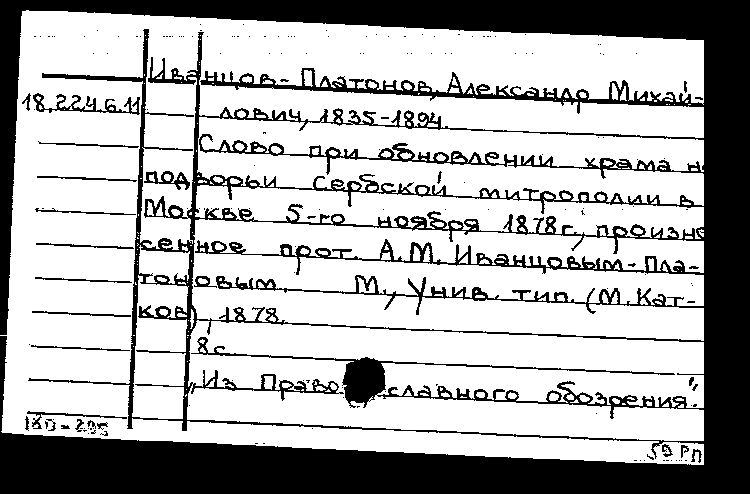 Иванцов-Платонов, Александр Михай-
18.224.6.11
лович, 1835-1894.
Слово при обновлении храма на
подворьи Сербской митрополии в
Москве 5-го ноября 1878 г., произне
сенное прот. А.М. Иванцовым-Пла-
тоновым. М., Унив. тип. (М. Кат-
ков), 1878.
8 с.
„Из Православного обозрения".
180-295
59 РП